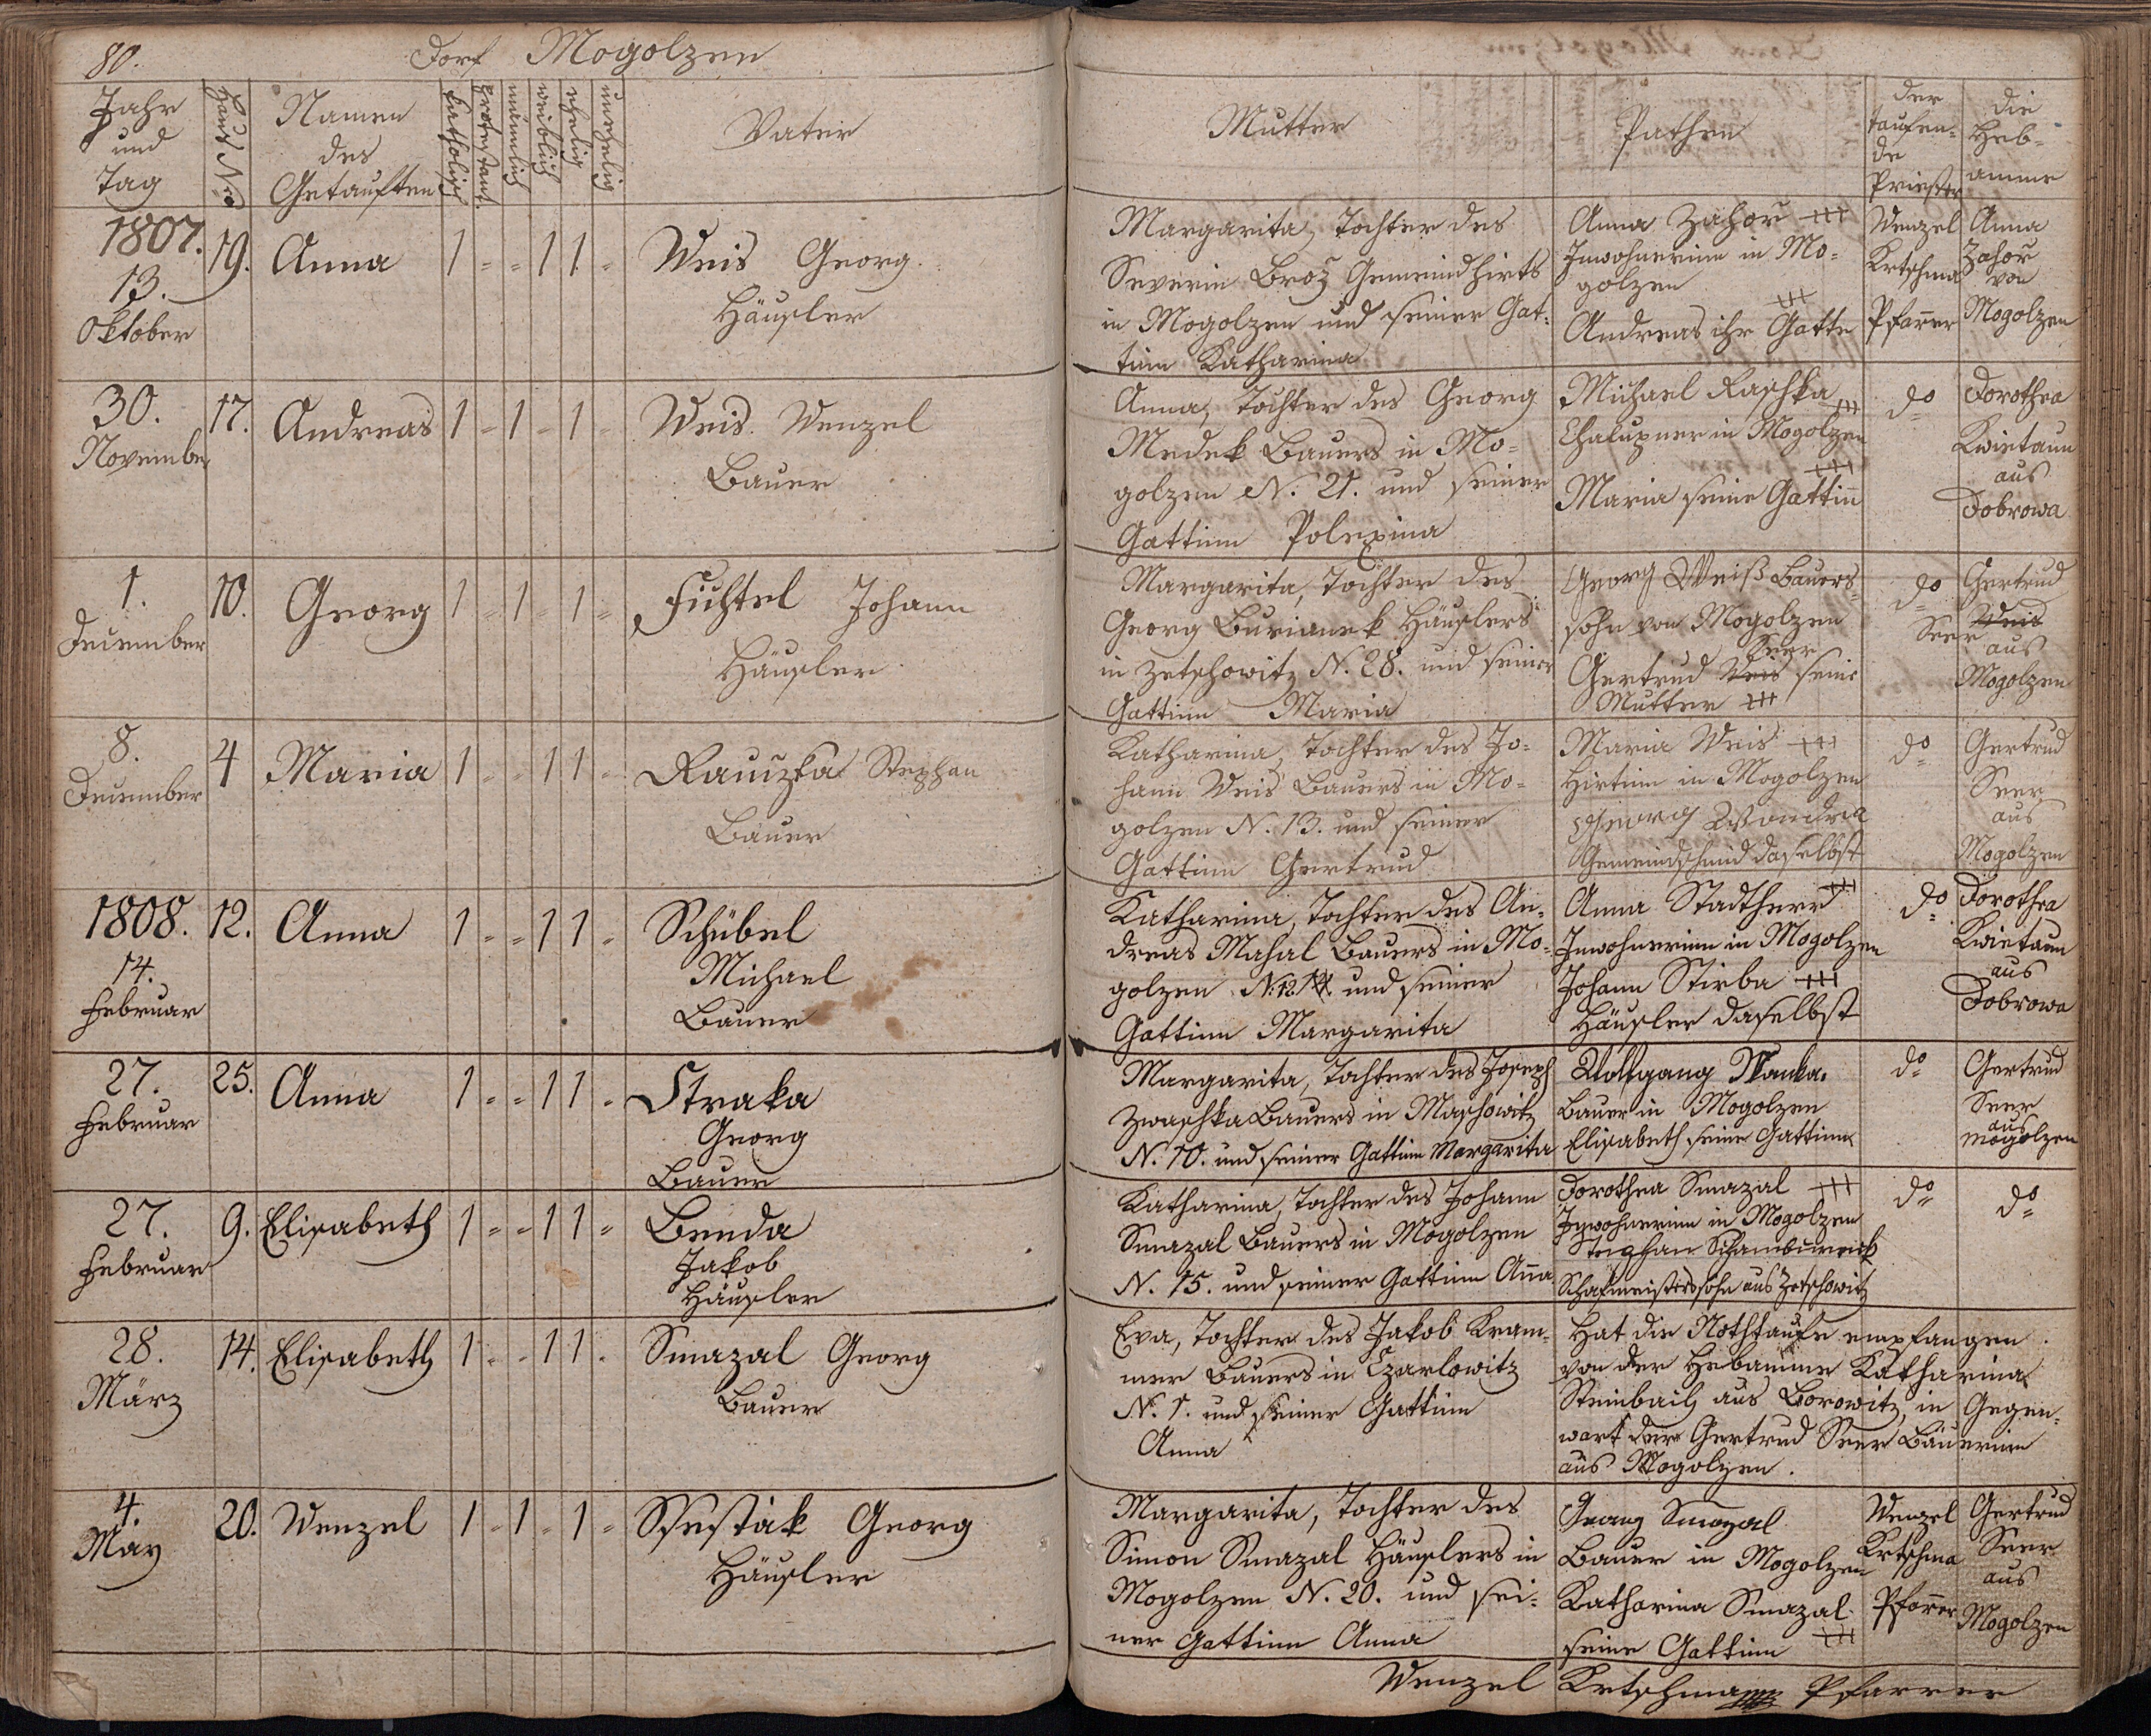 80.
Dorf Mogolzen
Jahr und Tag
Haus Nro
Namen des Getauften
katholisch
protestant.
männlich
weiblich
ehelig
unehelig
Vater
Mutter
Pathen
der taufen=
de
Priester
die
Heb=
amme
1807.
13.
Oktober
19.
Anna
1 = = 1 1 =
Weis Georg
Häusler
Margarita, Tochter des
Severin Broz Gemeindhirts
in Mogolzen und seiner Gat=
tinn Katharina
Anna Zahoř +++
Inwohnerinn in Mo=
golzen
+++
Andreas ihr Gatte
Wenzel
Krtschma
Pfarrer
Anna
Zahoř
von
Mogolzen
30.
November
17.
Andreas
1 = 1 = 1 =
Weis Wenzel
Bauer
Anna, Tochter des Georg
Medek Bauers in Mo=
golzen N. 21. und seiner
Gattinn Polexina
Michael Raschka
+++
Chalupner in Mogolzen
+++
Maria seine Gattinn
do
Dorothea
Kwietaun
aus
Dobrowa
1.
December
10.
Georg
1 = 1 = 1 =
Fichtel Johann
Häusler
Margarita, Tochter des
Georg Burianek Häuslers
in Zetschowitz N. 28. und seiner
Gattinn Maria
Georg Weiß Bauers=
sohn von Mogolzen
Seer
Gertrud Weis seine
Mutter +++
do
Gertrud
Weis
Seer
aus
Mogolzen
8.
December
4
Maria
1 = = 1 1 =
Rauczka Stephan
Bauer
Katharina, Tochter des Jo=
hann Weis Bauers in Mo=
golzen N. 13. und seiner
Gattinn Gertrud
Maria Weis +++
Hirtinn in Mogolzen
Georg Wondra
Gemeindschmid daselbst
do
Gertrud
Seer
aus
Mogolzen
1808.
14.
Februar
12.
Anna
1 = = 1 1 =
Schübel
Michael
Bauer
Katharina, Tochter des An=
dreas Mahal Bauers in Mo=
golzen N. 12. und seiner
Gattinn Margarita
+++
Anna Stadtherr
Inwohnerinn in Mogolzen
Johann Stirba +++
Häusler daselbst
do
Dorothea
Kwietaun
aus
Dobrowa
27.
Februar
25.
Anna
1 = = 1 1 =
Straka
Georg
Bauer
Margarita, Tochter des Joseph
Zwaschka Bauers in Maschowitz
N. 10. und seiner Gattinn Margarita
Wolfgang
Bauer in Mogolzen
Elisabeth seine Gattinn
do
Gertrud
Seer
aus
Mogolzen
27.
Februar
9.
Elisabeth
1 = = 1 1 =
Benda
Jakob
Häusler
Katharina, Tochter des Johann
Smazal Bauers in Mogolzen
N. 15. und seiner Gattinn Anna
Dorothea Smazal +++
Inwohnerinn in Mogolzen
Stephan
Schafmeisterssohn aus Zetschowitz
do
do
28.
März
14.
Elisabeth
1 = = 1 1 =
Smazal Georg
Bauer
Eva, Tochter des Jakob Kram=
mer Bauers in Czarlowitz
N. 1. und seiner Gattinn
Anna
Hat die Nothtaufe empfangen
von der Hebamme Katharina
Steinbach aus Borowitz, in Gegen=
wart der Gertrud Seer Bäuerinn
aus Mogolzen.
4.
May
20.
Wenzel
1 = 1 = 1 =
Schestak Georg
Häusler
Margarita, Tochter des
Simon Smazal Häuslers in
Mogolzen N. 20. und sei=
ner Gattinn Anna
Georg Smazal
Bauer in Mogolzen
Katharina Smazal
seine Gattinn +++
Wenzel
Krtschma
Pfarrer
Gertrud
Seer
aus
Mogolzen
Wenzel Krtschma Pfarrer